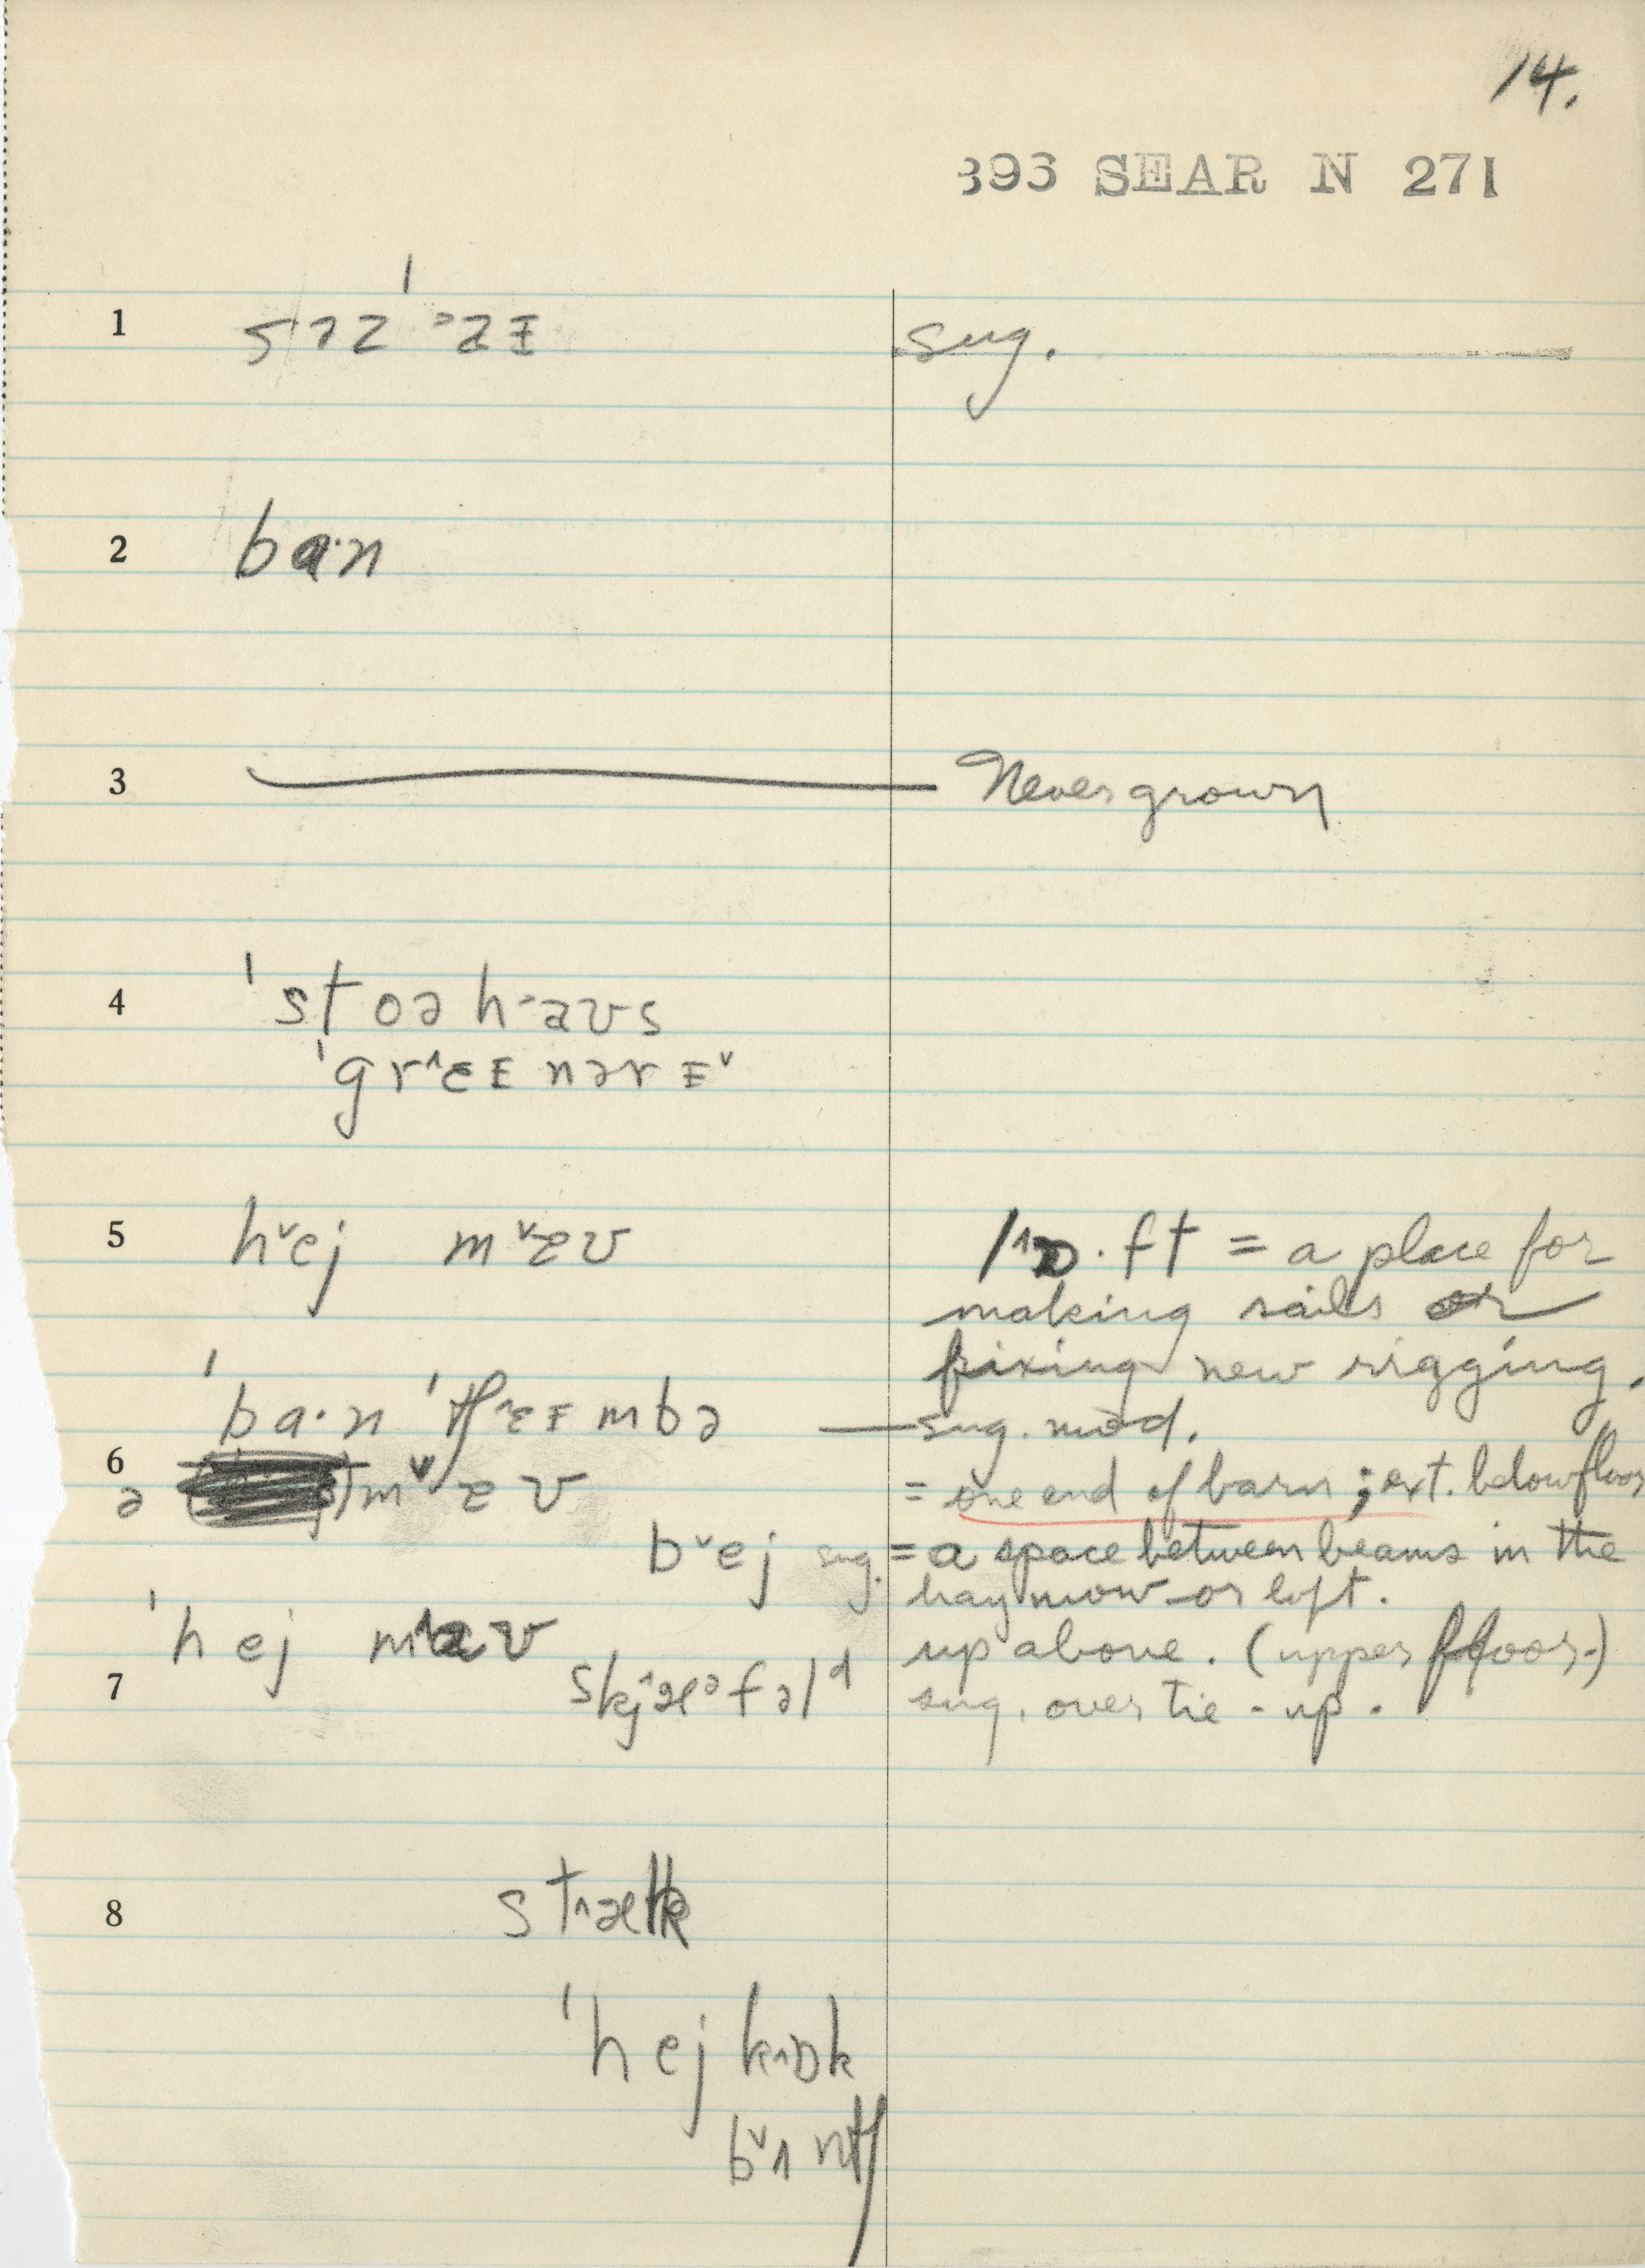 14.
393 SEAR N 271
1 sug.
2 ba·n
3 Never grown
4 ˈstoə h˃aʊs
ˈgrˆɛɪ nərɪˇ
5 hˇej mˇɐʊ lˆɒ·ft = a place for
making sails or
fixing new rigging.
ˈba·n ˈtʃˆɛɪmbə — sug. mod.
6 = one end of barn; ext. below floor
ə mˇɐʊ
bˇej sug. = a space between beams in the
hay mow or loft.
ˈhej mˆaʊ up above. (upper floor.)
7 skjˆæᵊfəlᵈ sug. over tie-up.
8 stˆæk
ˈhej kˆɒk
bˇʌntʃ